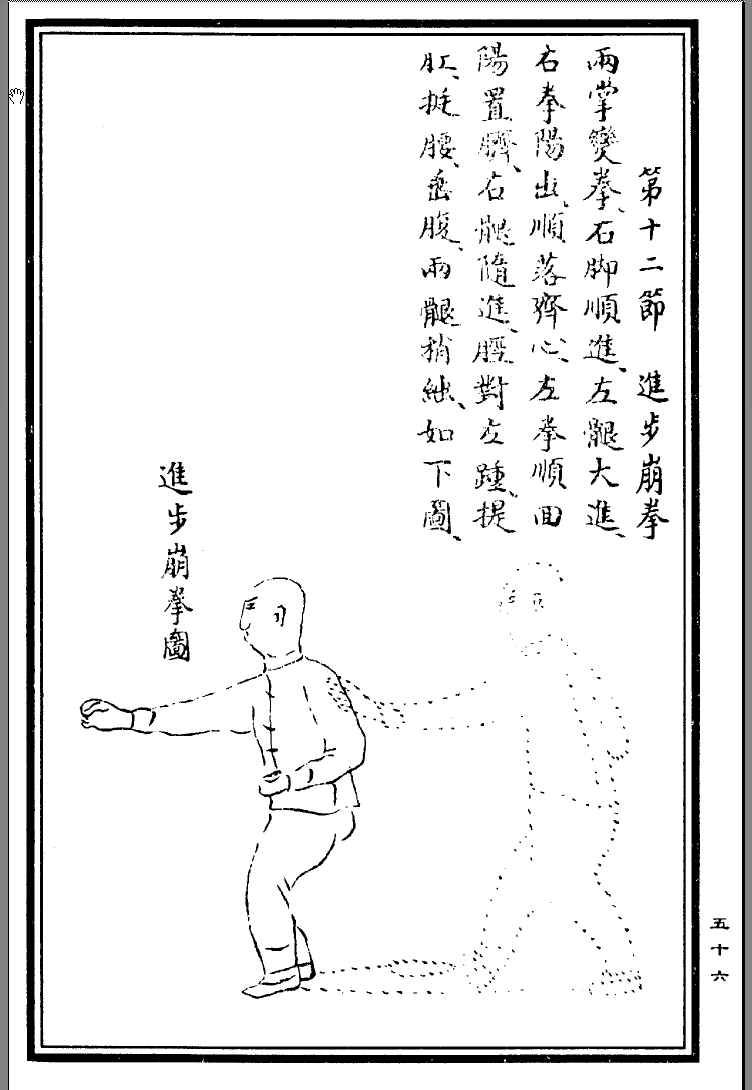 第十二節 進步崩拳
兩掌變拳、右脚順進、左腿大進、
右拳陽出、順落齊心、左拳順回
陽置臍、右腿隨進、脛對左踵、提
肛、挺腰、垂腹、兩腿稍絀、如下圖、
進步崩拳圖
五十六